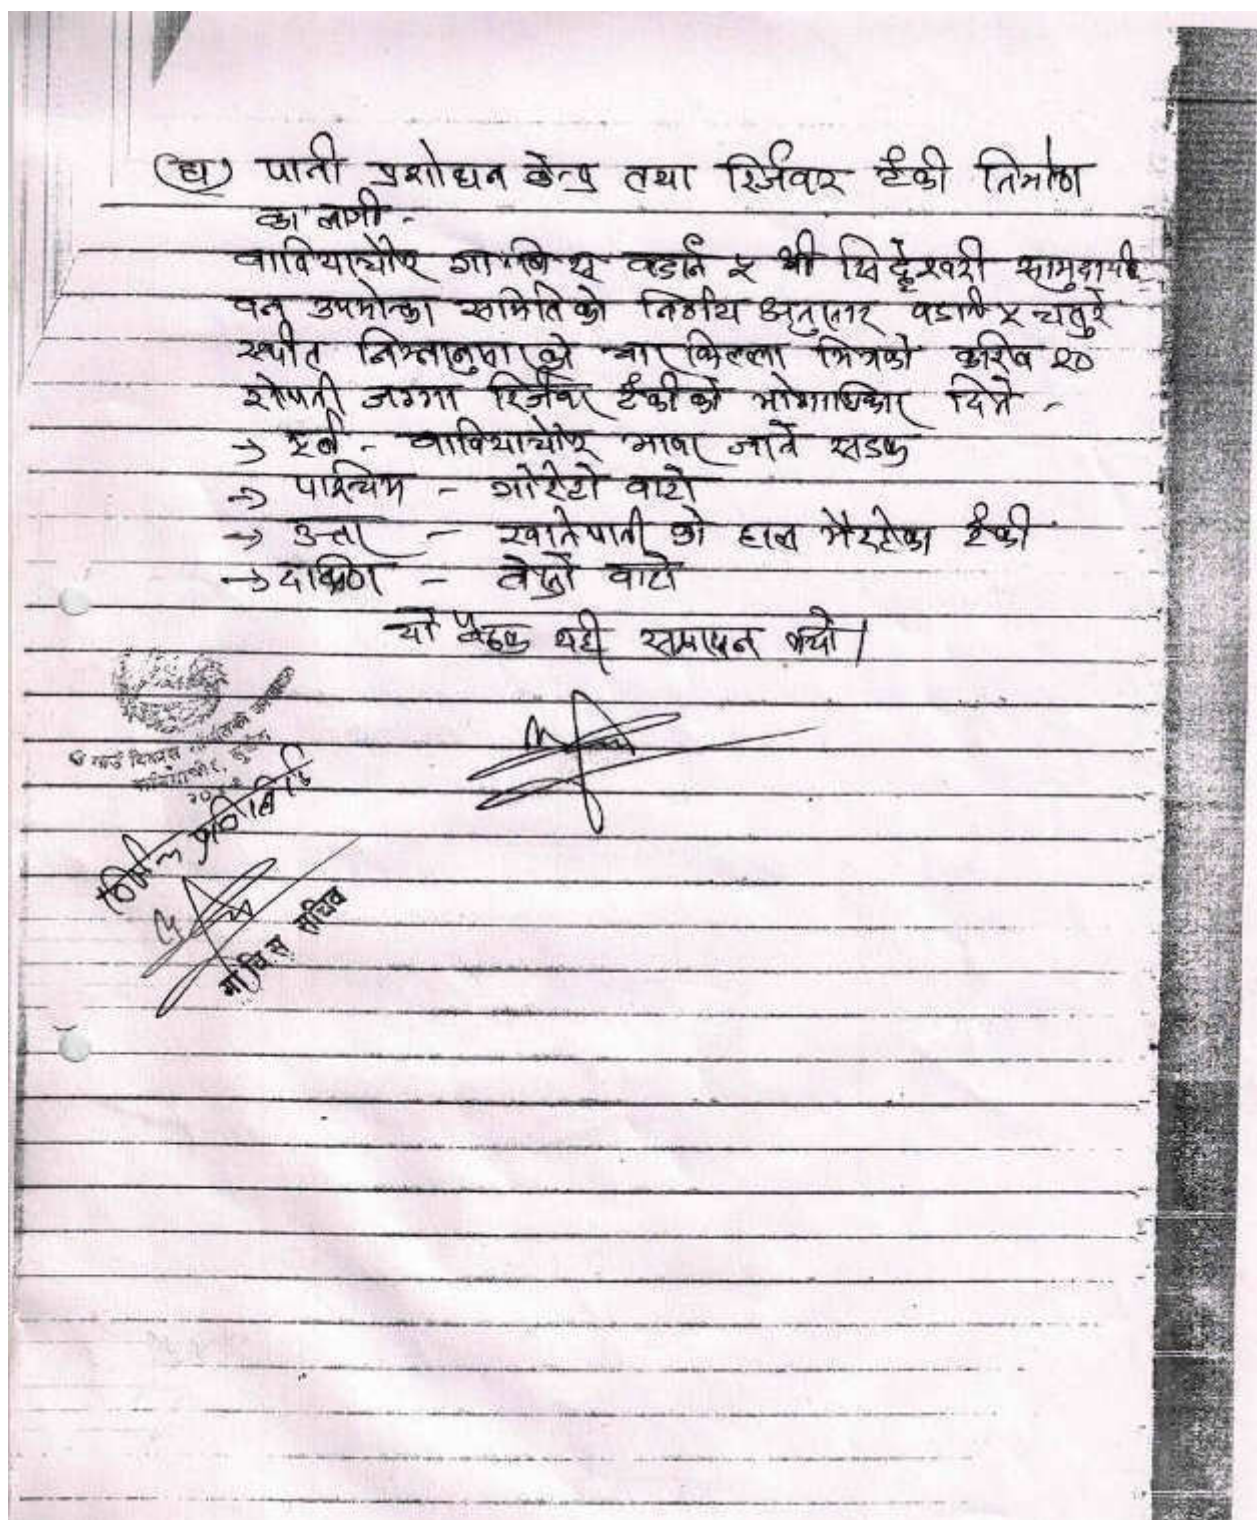 (घ) पानी प्रशोधन केन्द्र तथा रिर्जवर टंकी निर्माण
का लागी -
वावियाचौर गा वि स वडानं ५ श्री सिद्धेश्वरी सामुदायीक
वन उपभोक्ता समितिको निर्णय अनुसार वडानं ५ चतुरे
स्थीत निम्नानुसारको चार किल्ला भित्रको करिव २०
रोपनी जग्गा रिर्जवर टंकीको भोगाधिकार दिने -
→ पूर्व - वावियाचौर जाने सडक
→ पश्चिम - गोरेटो वाटो
→ उत्तर - खानेपानी को हाल भैरहेको टंकी
→ दक्षिण - तेर्सो वाटो
यो बैठक यही समापन भयो।
गाउँ विकास समितिको कार्यालय
वावियाचौर, सुर्खेत
प्रतिलिपि
गा वि स सचिव